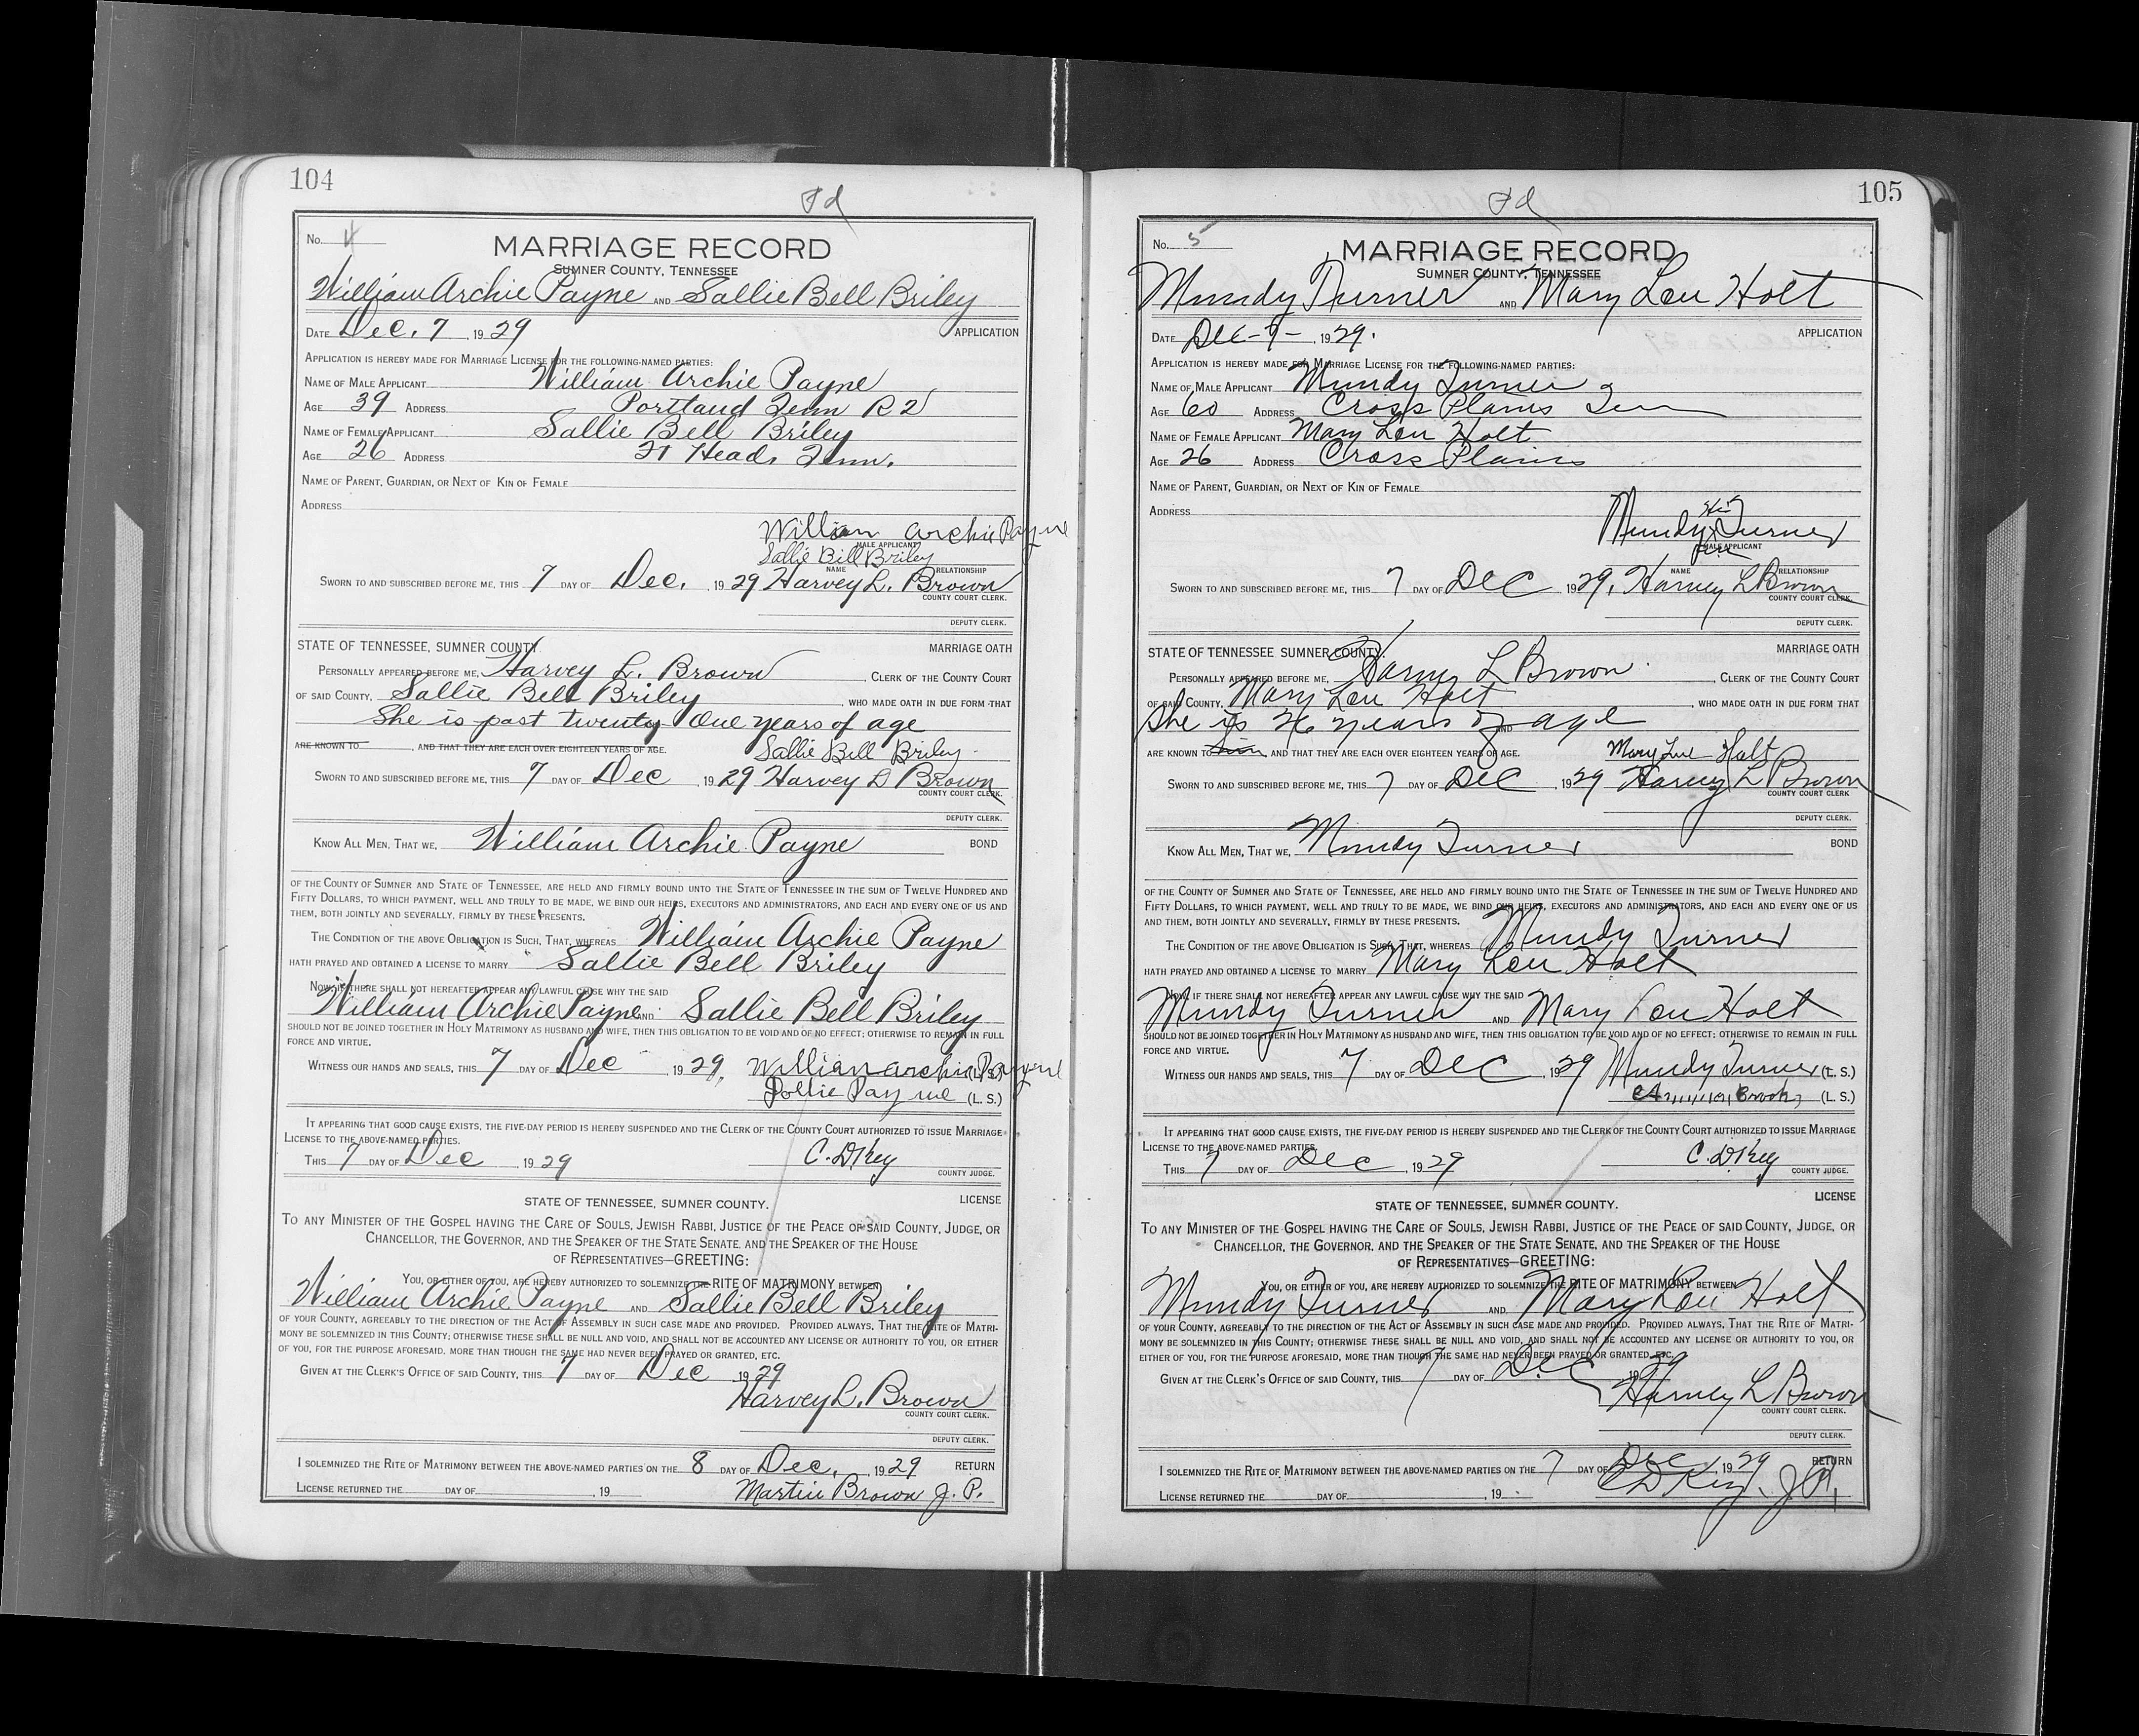 104
Pd
No. 4
MARRIAGE RECORD
SUMNER COUNTY, TENNESSEE
William Archie Payne AND Sallie Bell Briley
DATE Dec. 7, 1929 APPLICATION
APPLICATION IS HEREBY MADE FOR MARRIAGE LICENSE FOR THE FOLLOWING-NAMED PARTIES:
NAME OF MALE APPLICANT William Archie Payne
AGE 39 ADDRESS Portland Tenn R 2
NAME OF FEMALE APPLICANT Sallie Bell Briley
AGE 26 ADDRESS Heads Tenn.
NAME OF PARENT, GUARDIAN, OR NEXT OF KIN OF FEMALE
ADDRESS
William Archie Payne
MALE APPLICANT
Sallie Bell Briley
NAME RELATIONSHIP
SWORN TO AND SUBSCRIBED BEFORE ME, THIS 7 DAY OF Dec. , 1929 Harvey L. Brown
COUNTY COURT CLERK.
DEPUTY CLERK.
STATE OF TENNESSEE, SUMNER COUNTY. MARRIAGE OATH
PERSONALLY APPEARED BEFORE ME, Harvey L. Brown , CLERK OF THE COUNTY COURT
OF SAID COUNTY, Sallie Bell Briley , WHO MADE OATH IN DUE FORM THAT
She is past twenty One years of age
ARE KNOWN TO , AND THAT THEY ARE EACH OVER EIGHTEEN YEARS OF AGE. Sallie Bell Briley
SWORN TO AND SUBSCRIBED BEFORE ME, THIS 7 DAY OF Dec , 1929 Harvey L Brown
COUNTY COURT CLERK.
DEPUTY CLERK.
KNOW ALL MEN, THAT WE, William Archie Payne BOND
OF THE COUNTY OF SUMNER AND STATE OF TENNESSEE, ARE HELD AND FIRMLY BOUND UNTO THE STATE OF TENNESSEE IN THE SUM OF TWELVE HUNDRED AND
FIFTY DOLLARS, TO WHICH PAYMENT, WELL AND TRULY TO BE MADE, WE BIND OUR HEIRS, EXECUTORS AND ADMINISTRATORS, AND EACH AND EVERY ONE OF US AND
THEM, BOTH JOINTLY AND SEVERALLY, FIRMLY BY THESE PRESENTS.
THE CONDITION OF THE ABOVE OBLIGATION IS SUCH, THAT, WHEREAS William Archie Payne
HATH PRAYED AND OBTAINED A LICENSE TO MARRY Sallie Bell Briley
NOW, IF THERE SHALL NOT HEREAFTER APPEAR ANY LAWFUL CAUSE WHY THE SAID
William Archie Payne AND Sallie Bell Briley
SHOULD NOT BE JOINED TOGETHER IN HOLY MATRIMONY AS HUSBAND AND WIFE, THEN THIS OBLIGATION TO BE VOID AND OF NO EFFECT; OTHERWISE TO REMAIN IN FULL
FORCE AND VIRTUE.
WITNESS OUR HANDS AND SEALS, THIS 7 DAY OF Dec 1929, William Archie Payne (L. S.)
Payne (L. S.)
IT APPEARING THAT GOOD CAUSE EXISTS, THE FIVE-DAY PERIOD IS HEREBY SUSPENDED AND THE CLERK OF THE COUNTY COURT AUTHORIZED TO ISSUE MARRIAGE
LICENSE TO THE ABOVE-NAMED PARTIES.
THIS 7 DAY OF Dec , 1929 C. D Key
COUNTY JUDGE.
STATE OF TENNESSEE, SUMNER COUNTY. LICENSE
TO ANY MINISTER OF THE GOSPEL HAVING THE CARE OF SOULS, JEWISH RABBI, JUSTICE OF THE PEACE OF SAID COUNTY, JUDGE, OR
CHANCELLOR, THE GOVERNOR, AND THE SPEAKER OF THE STATE SENATE, AND THE SPEAKER OF THE HOUSE
OF REPRESENTATIVES—GREETING:
YOU, OR EITHER OF YOU, ARE HEREBY AUTHORIZED TO SOLEMNIZE THE RITE OF MATRIMONY BETWEEN
William Archie Payne AND Sallie Bell Briley
OF YOUR COUNTY, AGREEABLY TO THE DIRECTION OF THE ACT OF ASSEMBLY IN SUCH CASE MADE AND PROVIDED. PROVIDED ALWAYS, THAT THE RITE OF MATRI-
MONY BE SOLEMNIZED IN THIS COUNTY; OTHERWISE THESE SHALL BE NULL AND VOID, AND SHALL NOT BE ACCOUNTED ANY LICENSE OR AUTHORITY TO YOU, OR EITHER
OF YOU, FOR THE PURPOSE AFORESAID, MORE THAN THOUGH THE SAME HAD NEVER BEEN PRAYED OR GRANTED, ETC.
GIVEN AT THE CLERK'S OFFICE OF SAID COUNTY, THIS 7 DAY OF Dec 1929
Harvey L. Brown
COUNTY COURT CLERK.
DEPUTY CLERK.
I SOLEMNIZED THE RITE OF MATRIMONY BETWEEN THE ABOVE-NAMED PARTIES ON THE 8 DAY OF Dec. , 1929 RETURN
LICENSE RETURNED THE DAY OF , 19 Martin Brown J. P.
105
Pd
No. 5
MARRIAGE RECORD
SUMNER COUNTY, TENNESSEE
Mundy Turner AND Mary Lou Holt
DATE Dec-7- , 1929. APPLICATION
APPLICATION IS HEREBY MADE FOR MARRIAGE LICENSE FOR THE FOLLOWING-NAMED PARTIES:
NAME OF MALE APPLICANT Mundy Turner
AGE 60 ADDRESS Cross Plains Ten
NAME OF FEMALE APPLICANT Mary Lou Holt
AGE 26 ADDRESS Cross Plains
NAME OF PARENT, GUARDIAN, OR NEXT OF KIN OF FEMALE
ADDRESS
His
Mundy X Turner
MALE APPLICANT
NAME RELATIONSHIP
SWORN TO AND SUBSCRIBED BEFORE ME, THIS 7 DAY OF Dec , 1929, Harvey L Brown
COUNTY COURT CLERK.
DEPUTY CLERK.
STATE OF TENNESSEE, SUMNER COUNTY. MARRIAGE OATH
PERSONALLY APPEARED BEFORE ME, Harvey L Brown , CLERK OF THE COUNTY COURT
OF SAID COUNTY, Mary Lou Holt , WHO MADE OATH IN DUE FORM THAT
She is 26 years of age AND
ARE KNOWN TO him AND THAT THEY ARE EACH OVER EIGHTEEN YEARS OF AGE. Mary Lue Holt
SWORN TO AND SUBSCRIBED BEFORE ME, THIS 7 DAY OF Dec , 1929 Harvey L Brown
COUNTY COURT CLERK
DEPUTY CLERK.
KNOW ALL MEN, THAT WE, Mundy Turner BOND
OF THE COUNTY OF SUMNER AND STATE OF TENNESSEE, ARE HELD AND FIRMLY BOUND UNTO THE STATE OF TENNESSEE IN THE SUM OF TWELVE HUNDRED AND
FIFTY DOLLARS, TO WHICH PAYMENT, WELL AND TRULY TO BE MADE, WE BIND OUR HEIRS, EXECUTORS AND ADMINISTRATORS, AND EACH AND EVERY ONE OF US
AND THEM, BOTH JOINTLY AND SEVERALLY, FIRMLY BY THESE PRESENTS.
THE CONDITION OF THE ABOVE OBLIGATION IS SUCH, THAT, WHEREAS Mundy Turner
HATH PRAYED AND OBTAINED A LICENSE TO MARRY Mary Lou Holt
NOW, IF THERE SHALL NOT HEREAFTER APPEAR ANY LAWFUL CAUSE WHY THE SAID
Mundy Turner AND Mary Lou Holt
SHOULD NOT BE JOINED TOGETHER IN HOLY MATRIMONY AS HUSBAND AND WIFE, THEN THIS OBLIGATION TO BE VOID AND OF NO EFFECT; OTHERWISE TO REMAIN IN FULL
FORCE AND VIRTUE.
WITNESS OUR HANDS AND SEALS, THIS 7 DAY OF Dec , 1929 Mundy Turner (L. S.)
Brooks (L. S.)
IT APPEARING THAT GOOD CAUSE EXISTS, THE FIVE-DAY PERIOD IS HEREBY SUSPENDED AND THE CLERK OF THE COUNTY COURT AUTHORIZED TO ISSUE MARRIAGE
LICENSE TO THE ABOVE-NAMED PARTIES.
THIS 7 DAY OF Dec , 1929 C. D. Key
COUNTY JUDGE.
STATE OF TENNESSEE, SUMNER COUNTY. LICENSE
TO ANY MINISTER OF THE GOSPEL HAVING THE CARE OF SOULS, JEWISH RABBI, JUSTICE OF THE PEACE OF SAID COUNTY, JUDGE, OR
CHANCELLOR, THE GOVERNOR, AND THE SPEAKER OF THE STATE SENATE, AND THE SPEAKER OF THE HOUSE
OF REPRESENTATIVES—GREETING:
YOU, OR EITHER OF YOU, ARE HEREBY AUTHORIZED TO SOLEMNIZE THE RITE OF MATRIMONY BETWEEN
Mundy Turner AND Mary Lou Holt
OF YOUR COUNTY, AGREEABLY TO THE DIRECTION OF THE ACT OF ASSEMBLY IN SUCH CASE MADE AND PROVIDED. PROVIDED ALWAYS, THAT THE RITE OF MATRI-
MONY BE SOLEMNIZED IN THIS COUNTY; OTHERWISE THESE SHALL BE NULL AND VOID, AND SHALL NOT BE ACCOUNTED ANY LICENSE OR AUTHORITY TO YOU, OR
EITHER OF YOU, FOR THE PURPOSE AFORESAID, MORE THAN THOUGH THE SAME HAD NEVER BEEN PRAYED OR GRANTED, ETC.
GIVEN AT THE CLERK'S OFFICE OF SAID COUNTY, THIS 7 DAY OF Dec 1929
Harvey L Brown
COUNTY COURT CLERK.
DEPUTY CLERK.
I SOLEMNIZED THE RITE OF MATRIMONY BETWEEN THE ABOVE-NAMED PARTIES ON THE 7 DAY OF Dec , 1929 RETURN
LICENSE RETURNED THE DAY OF , 19 C D Key, J P.